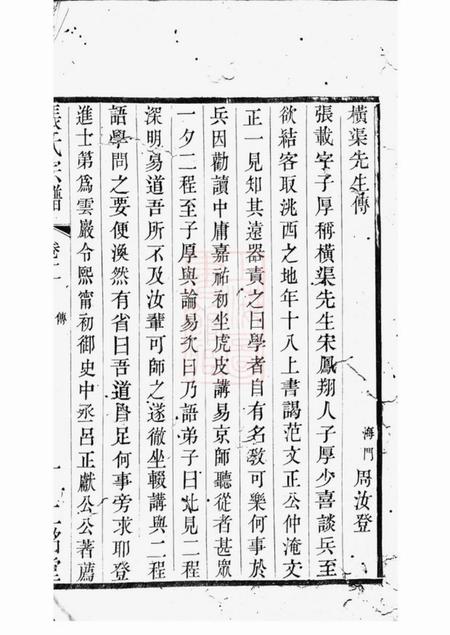 橫渠先生傳
海門 周汝登
張載字子厚稱橫渠先生宋鳳翔人子厚少喜談兵至
欲結客取洮西之地年十八上書謁范文正公仲淹文
正一見知其遠器責之曰學者自有名敎可樂何事於
兵因勸讀中庸嘉祐初坐虎皮講易京師聽從者甚眾
一夕二程至子厚與論易次日乃語弟子曰比見二程
深明易道吾所不及汝輩可師之遂徹坐輟講與二程
語學問之要便渙然有省曰吾道自足何事旁求耶登
進士第爲雲巖令熙甯初御史中丞呂正獻公公著薦
張氏宗譜 卷二 傳